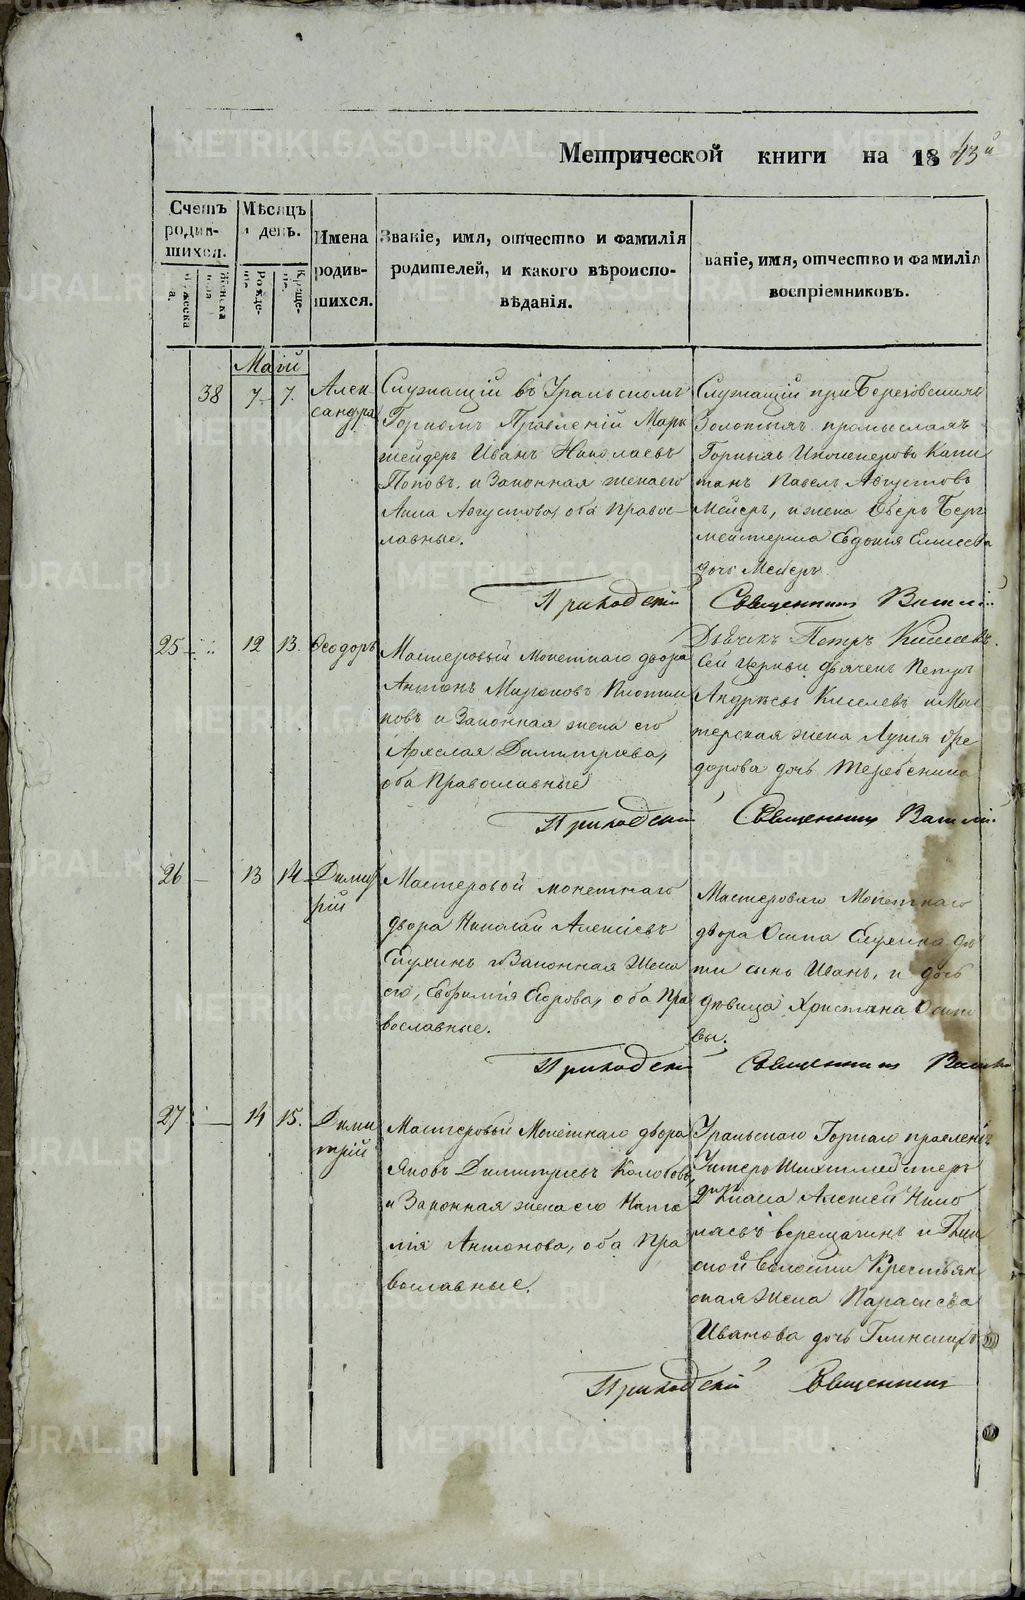 Метрической книги на 1843й
Счетъ родив-шихся.
Мѣсяцъ и день.
Имена родив-шихся.
Званіе, имя, отчество и фамилія
родителей, и какого вѣроиспо-
вѣданія.
ваніе, имя, отчество и фамилія
воспріемниковъ.
Маій
38 7 7. Алек
сандра
Служащій въ Уральскомъ
Горномъ Правленій Марк
шейдеръ Иванъ Николаевъ
Поповъ, и Законная жена его
Анна Августова, оба Правос-
лавные.
Служащій при Березовскихъ
Золотыхъ промыслахъ
Горныхъ Инженеровъ Капи
танъ Павелъ Августовъ
Мейеръ, и жена Оберъ Берг
мейстерша Евдокія Елисеева
дочь Мейеръ.
Приходскій Священникъ Василій
25 12 13. Ѳеодоръ
Мастеровый Монетнаго двора
Антонъ Миронов
новъ и Законная жена его
Димитриева,
оба Православные
Дьячекъ Петръ Киселевъ.
Сей Церкви дьячекъ Петръ
Андрѣевъ Киселевъ и Мас
терская жена Ѳе
дорова дочь Теребенина
Приходскій Священникъ Василій
26 13 14 Димит
рій
Мастеровой монетнаго
двора Николай Алексіевъ
Глухихъ и Законная Жена
его, Евфимія Егорова, оба Пра
вославные.
Мастероваго Монетнаго
двора Осипа дѣ
ти сынъ Иванъ, и дочь
дѣвица Христина Осипо
вы.
Приходскій Священникъ Василій
27 14 15. Дими
трій
Мастеровый Монетнаго двора
Яковъ Димитриевъ Колобовъ,
и Законная жена его Ната
лія Антонова, оба Пра
вославные.
Уральскаго Горнаго правленія
Унтеръ Шихтмейстеръ
Алексей Нико
лаевъ Верещагинъ и Глин
ской волости Крестьян
ская жена Параскева
Иванова дочь Глинскихъ
Приходскій Священникъ
METRIKI.GASO-URAL.RU